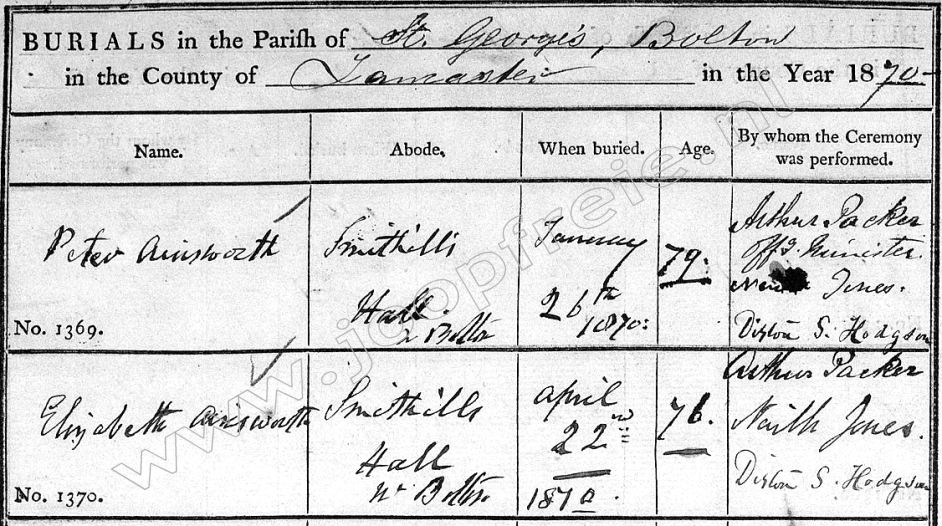 BURIALS in the Parish of St. George's, Bolton
in the County of Lancaster in the Year 1870
Name. Abode. When buried. Age. By whom the Ceremony was performed.
Peter Ainsworth
No. 1369.
Smithills
Hall
Bolton
January
26th
1870.
79.
Arthur Packer
Offg. Minister.
Jones.
Dixton S. Hodgson
Elizabeth Ainsworth
No. 1370.
Smithills
Hall
Nr Bolton
April
22nd
1870.
76.
Arthur Packer
Jones.
Dixton S. Hodgson
www.joopfreie.nl